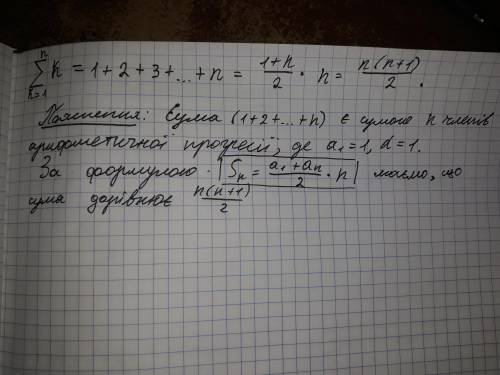 n
∑ k = 1 + 2 + 3 + ... + n = (1+n)/2 · n = n(n+1)/2 .
k=1
Пояснення: Сума (1+2+...+n) є сумою n членів
арифметичної прогресії, де a₁=1, d=1.
За формулою Sₙ = (a₁+aₙ)/2 · n маємо, що
сума дорівнює n(n+1)/2